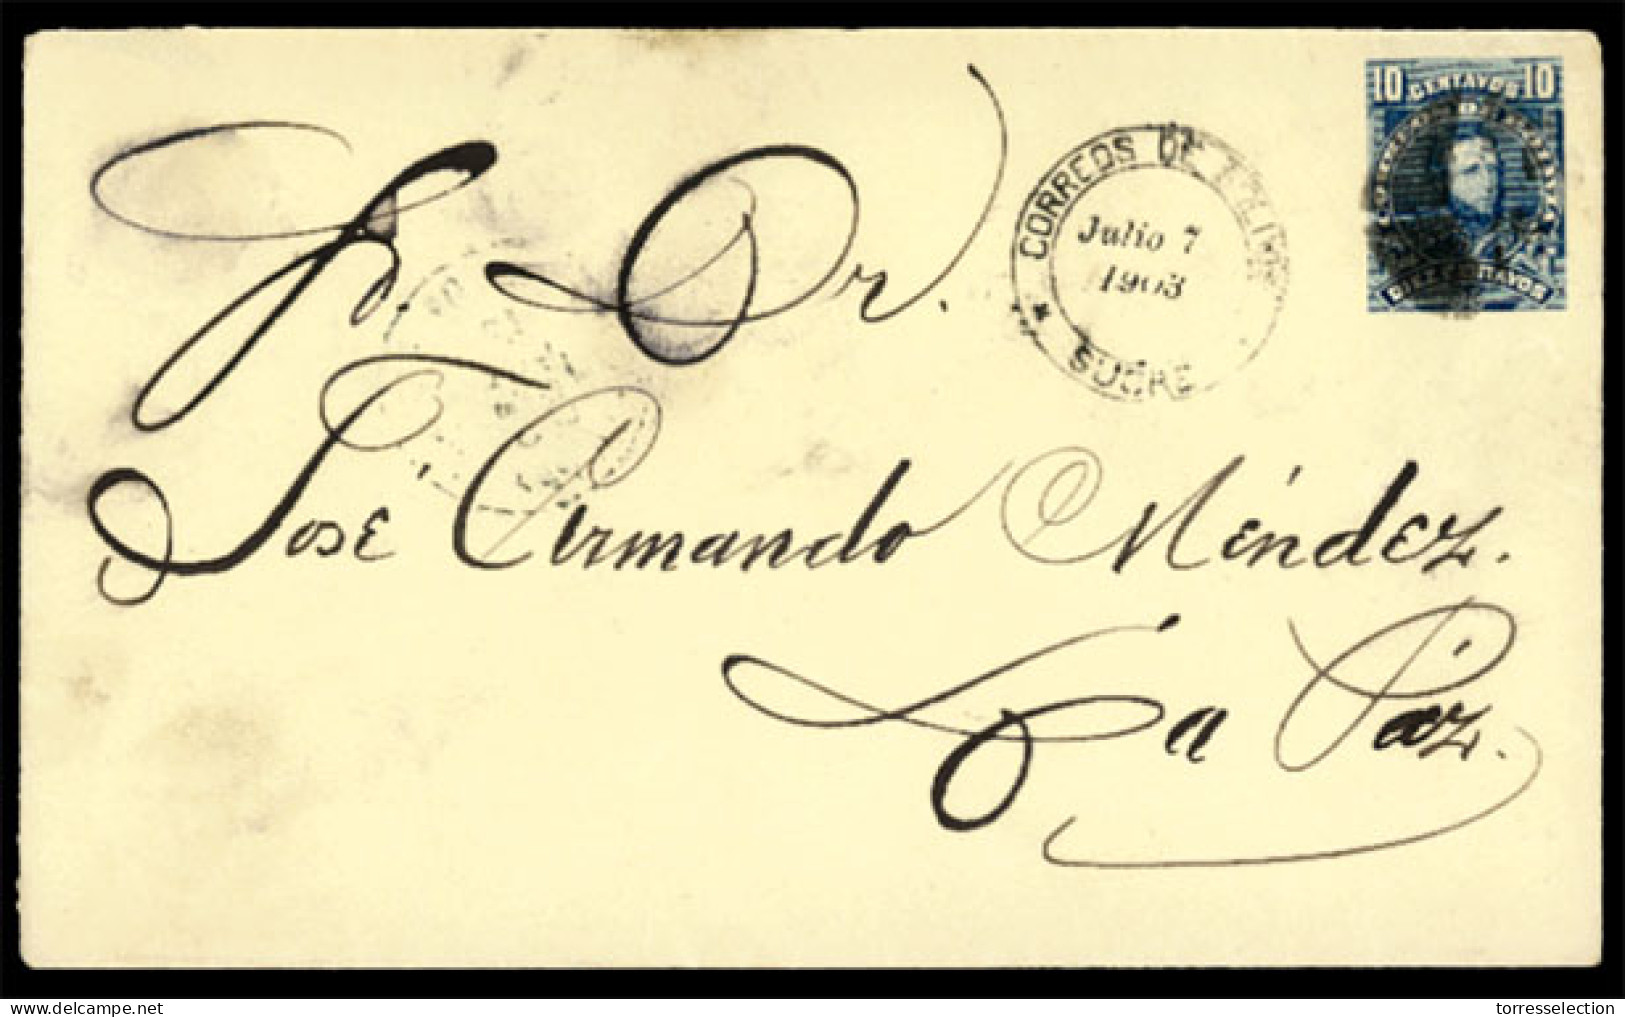 10 CENTAVOS 10
CORREOS DE BOLIVIA
Julio 7
1903
* SUCRE
DIEZ CENTAVOS
Sr. Dr.
José Armando Méndez.
La Paz.
delcampe.net
torresselection